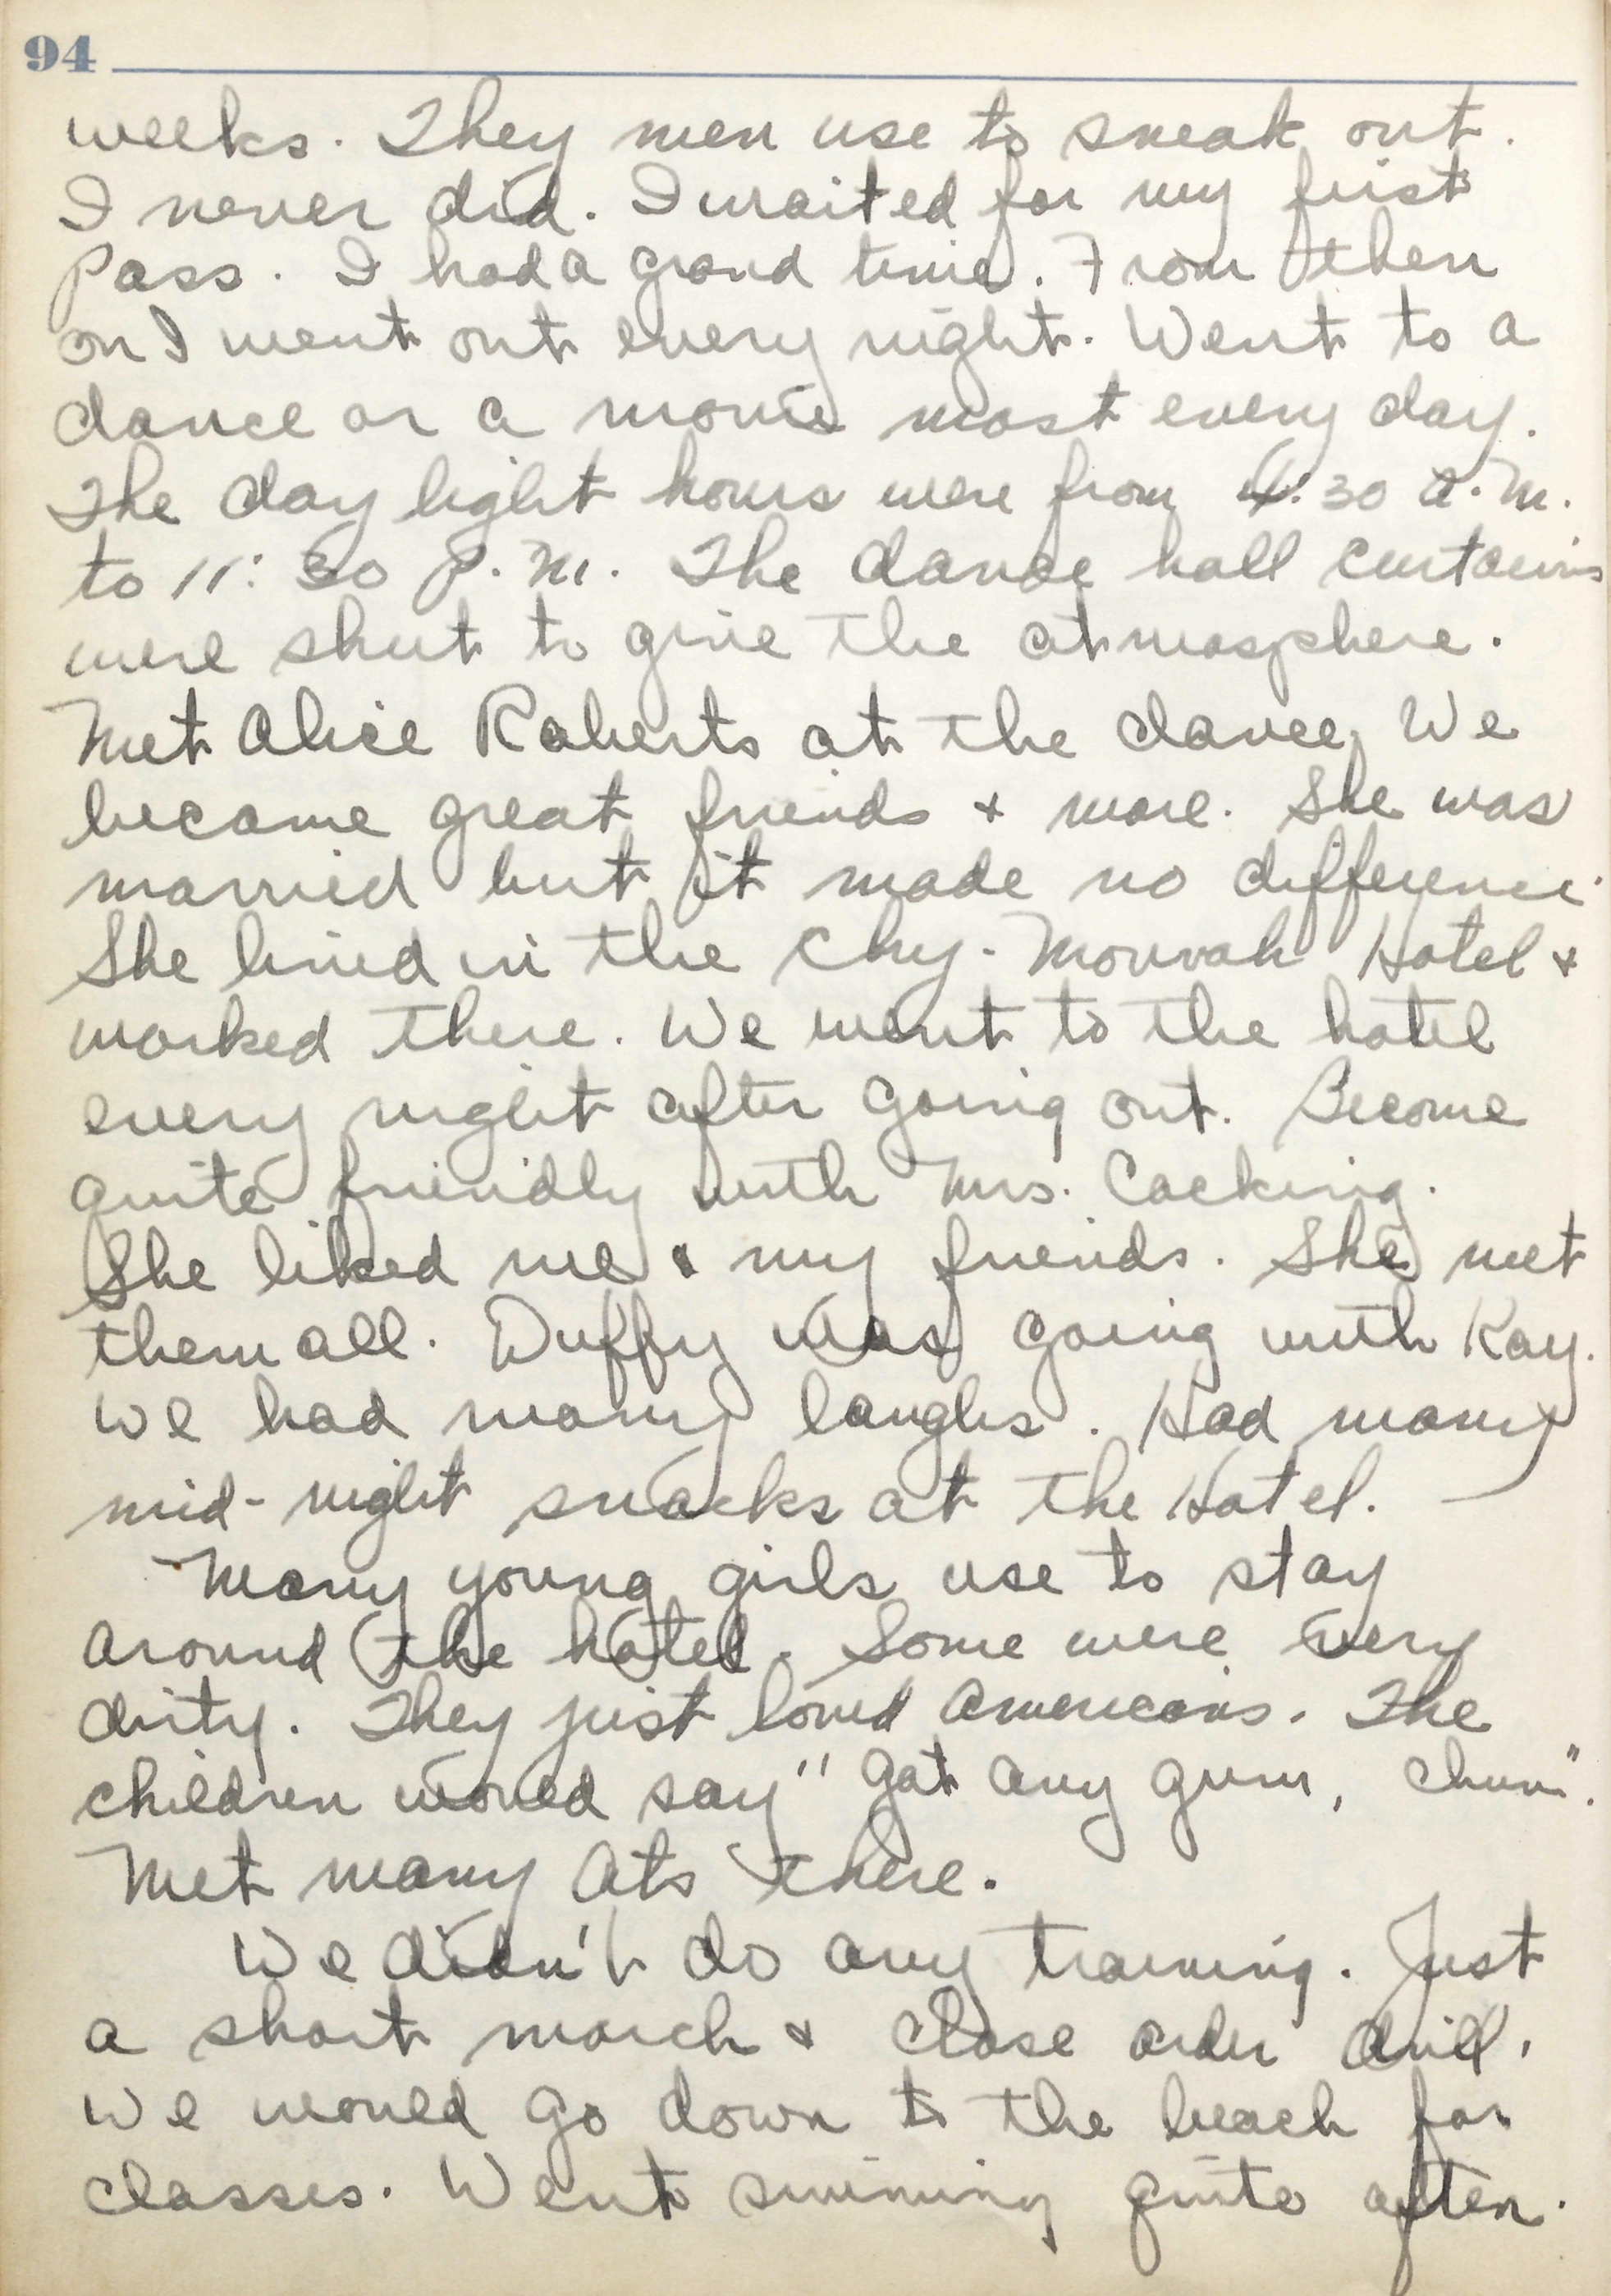 94
weeks. They men use to sneak out.
I never did. I waited for my first
Pass. I had a grand time. From then
on I went out every night. Went to a
dance or a movie most every day.
The day light hours were from 4:30 A.M.
to 11:30 P.M. The dance hall curtains
were shut to give the atmosphere.
Met Alice Roberts at the dance, We
became great friends + more. She was
married but it made no difference.
She lived in the Chy-Morvah Hotel +
worked there. We went to the hotel
every night after going out. Become
quite friendly with Mrs. Cocking.
She liked me & my friends. She met
them all. Duffy was going with Kay.
We had many laughs. Had many
mid-night snacks at the Hotel.
Many young girls use to stay
around the hotel. Some were very
dirty. They just loved Americans. The
children would say "Got any gum, chum".
Met many Ats there.
We didn't do any training. Just
a short march + close order drill.
We would go down to the beach for
classes. Went swimming quite often.